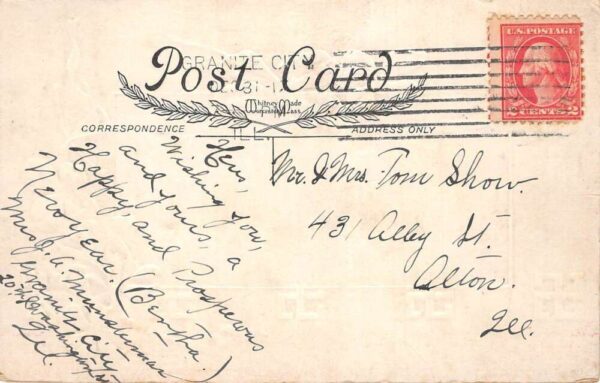 GRANITE CITY
Post Card
31-1
Whitney Made
Worcester, Mass.
CORRESPONDENCE
ADDRESS ONLY
ILL.
U.S. POSTAGE
2 CENTS 2
Wishing you,
and yours, a
Happy, and Prosperous
New Year. (Bertha)
Mrs. J. A.
Granite City
Ill.
Mr. & Mrs. Tom Show.
431 Alley St.
Alton.
Ill.